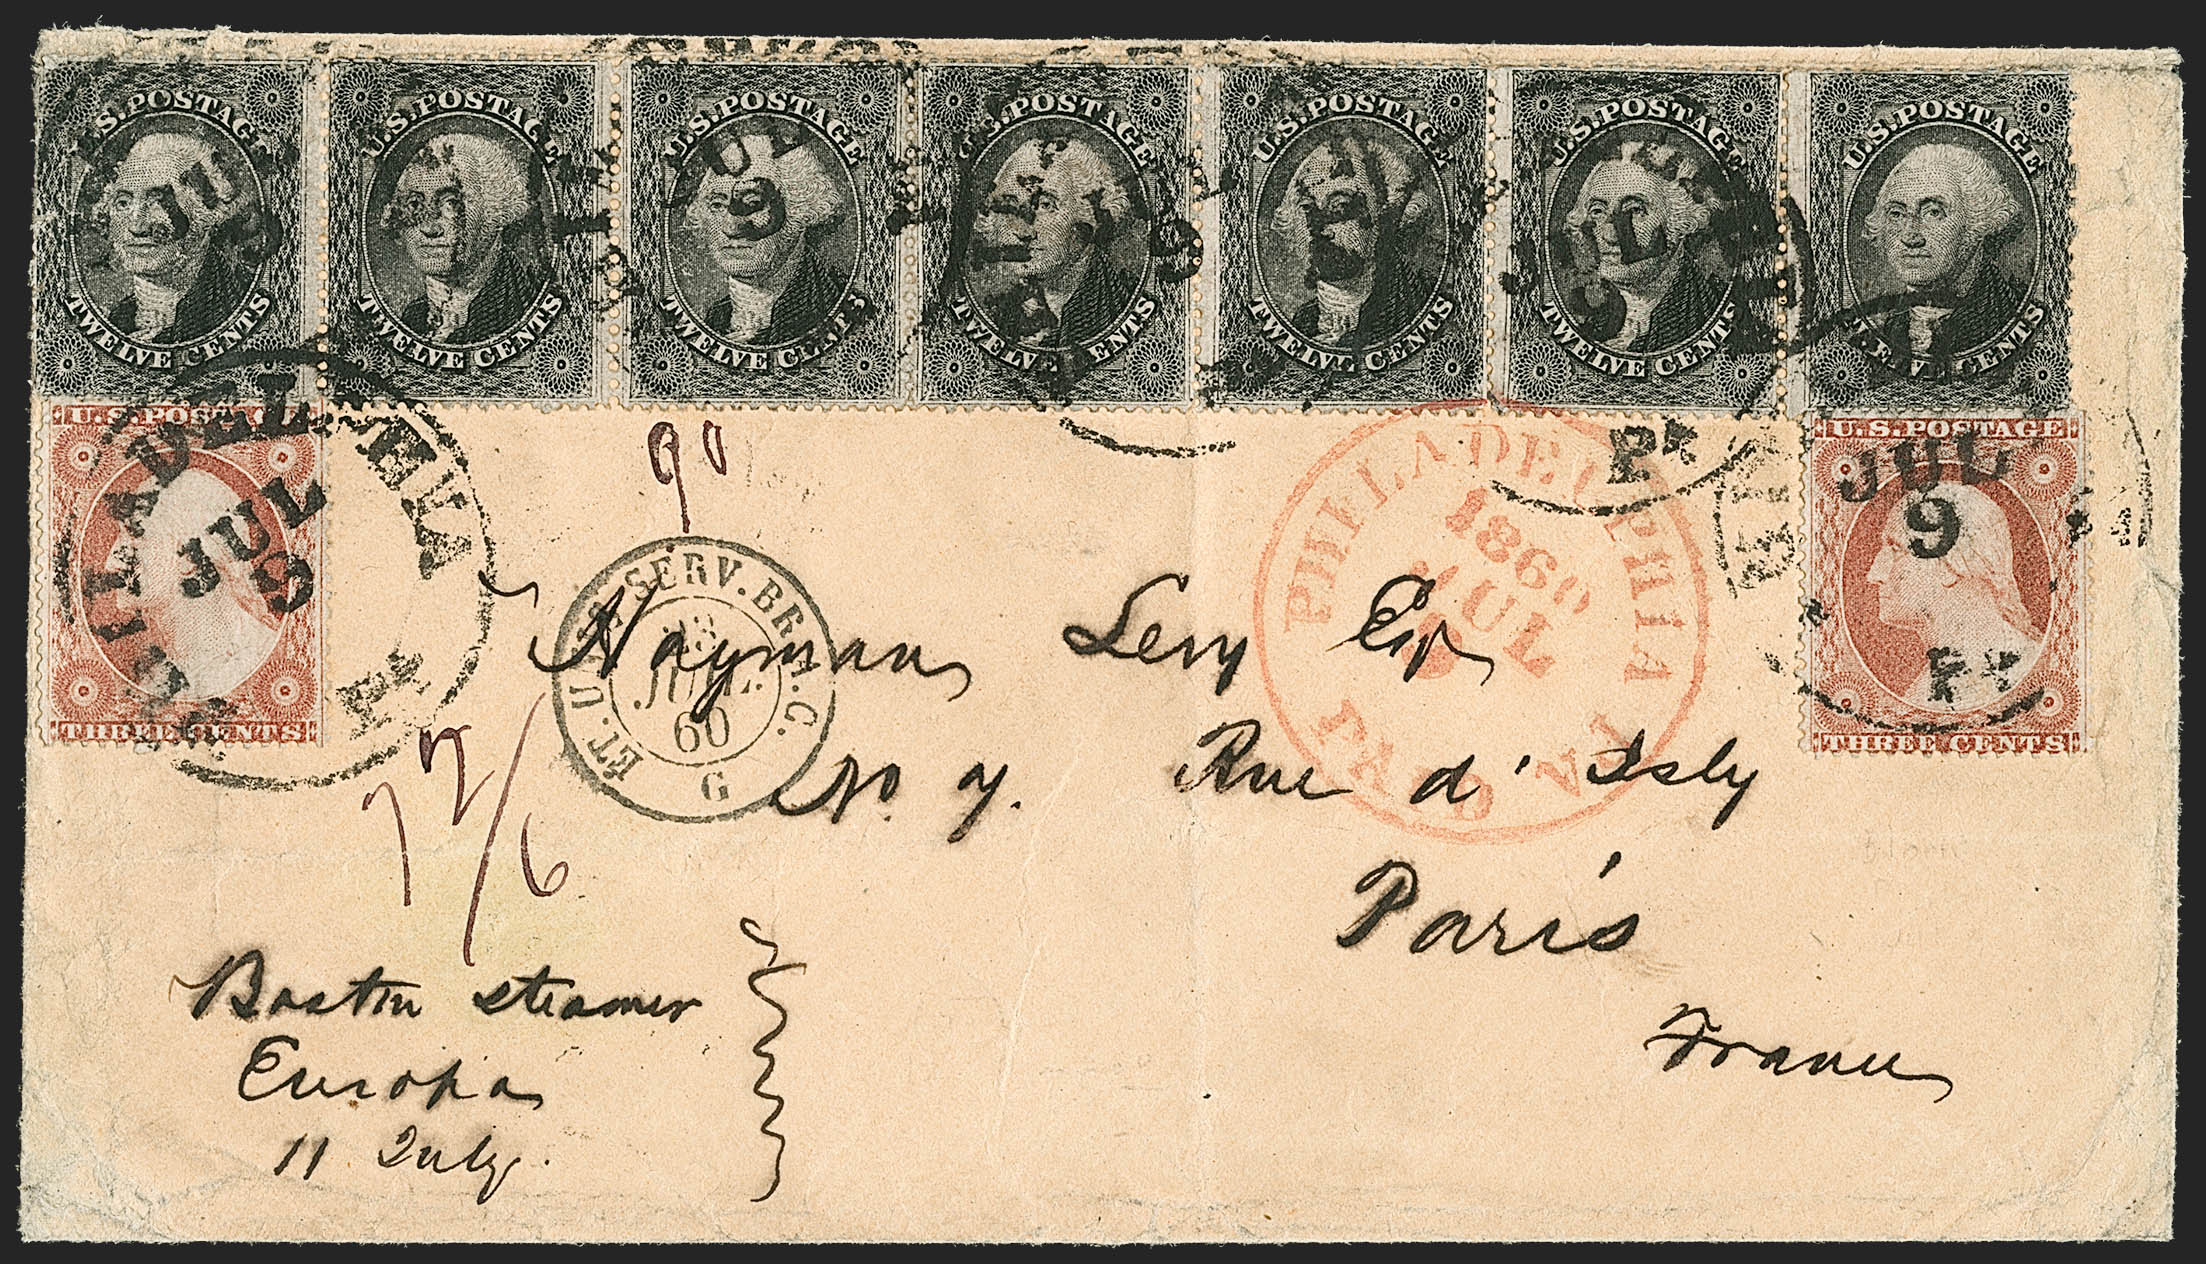 U.S. POSTAGE U.S. POSTAGE U.S. POSTAGE U.S. POSTAGE U.S. POSTAGE U.S. POSTAGE U.S. POSTAGE
JUL JUL JUL
9 9 9
TWELVE CENTS TWELVE CENTS TWELVE CENTS TWELVE CENTS TWELVE CENTS TWELVE CENTS TWELVE CENTS
U.S. POSTAGE
PHILADELPHIA
JUL
9
Pa
THREE CENTS
90
PHILADELPHIA
1860
JUL
PAID
Pa
U.S. POSTAGE
JUL
9
Pa
THREE CENTS
ÉT. UNIS SERV. BR. A.C.
23
JUIL.
60
G
Nayman Levy Esq
No. 7. Rue d' Isly
Paris
France
72/6
Boston steamer
Europa
11 July.